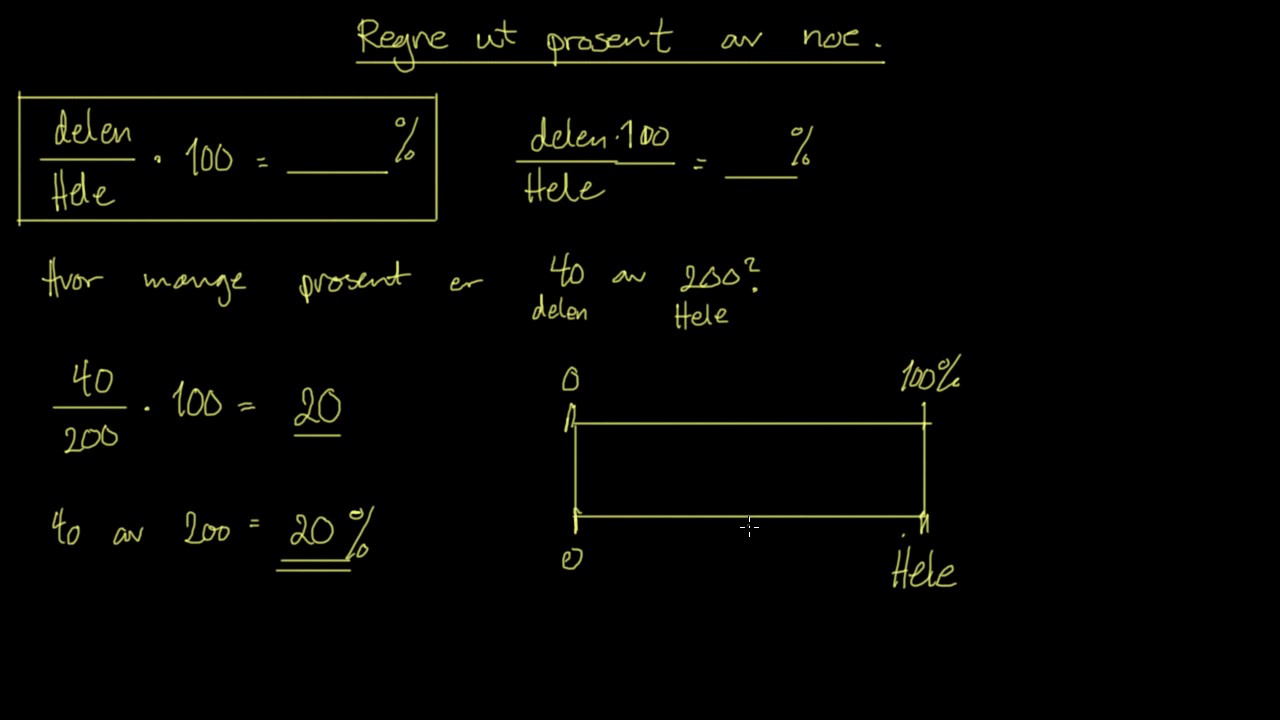 Regne ut prosent av noe.
delen / Hele · 100 = ____ %
delen · 100 / Hele = ____ %
Hvor mange prosent er 40 av 200?
delen Hele
40 / 200 · 100 = 20
0 100%
40 av 200 = 20 %
0 Hele